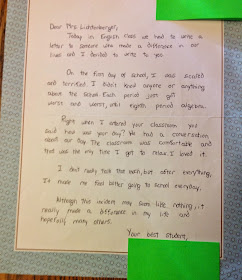 Dear Mrs Lichtenberger,
Today in English class we had to write a
letter to someone who made a difference in our
lives and I decided to write to you.
On the first day of school, I was scared
and terrified. I didn't know anyone or anything
about the school. Each period just got
worst and worst, until eighth period algebra.
Right when I entered your classroom you
said how was your day? We had a conversation
about our day. The classroom was comfortable and
that was the only time I got to relax. I loved it.
I don't really talk that much, but after everything,
it made me feel better going to school everyday.
Although this incident may seem little, nothing, it
really made a difference in my life and
hopefully many others.
Your best student,